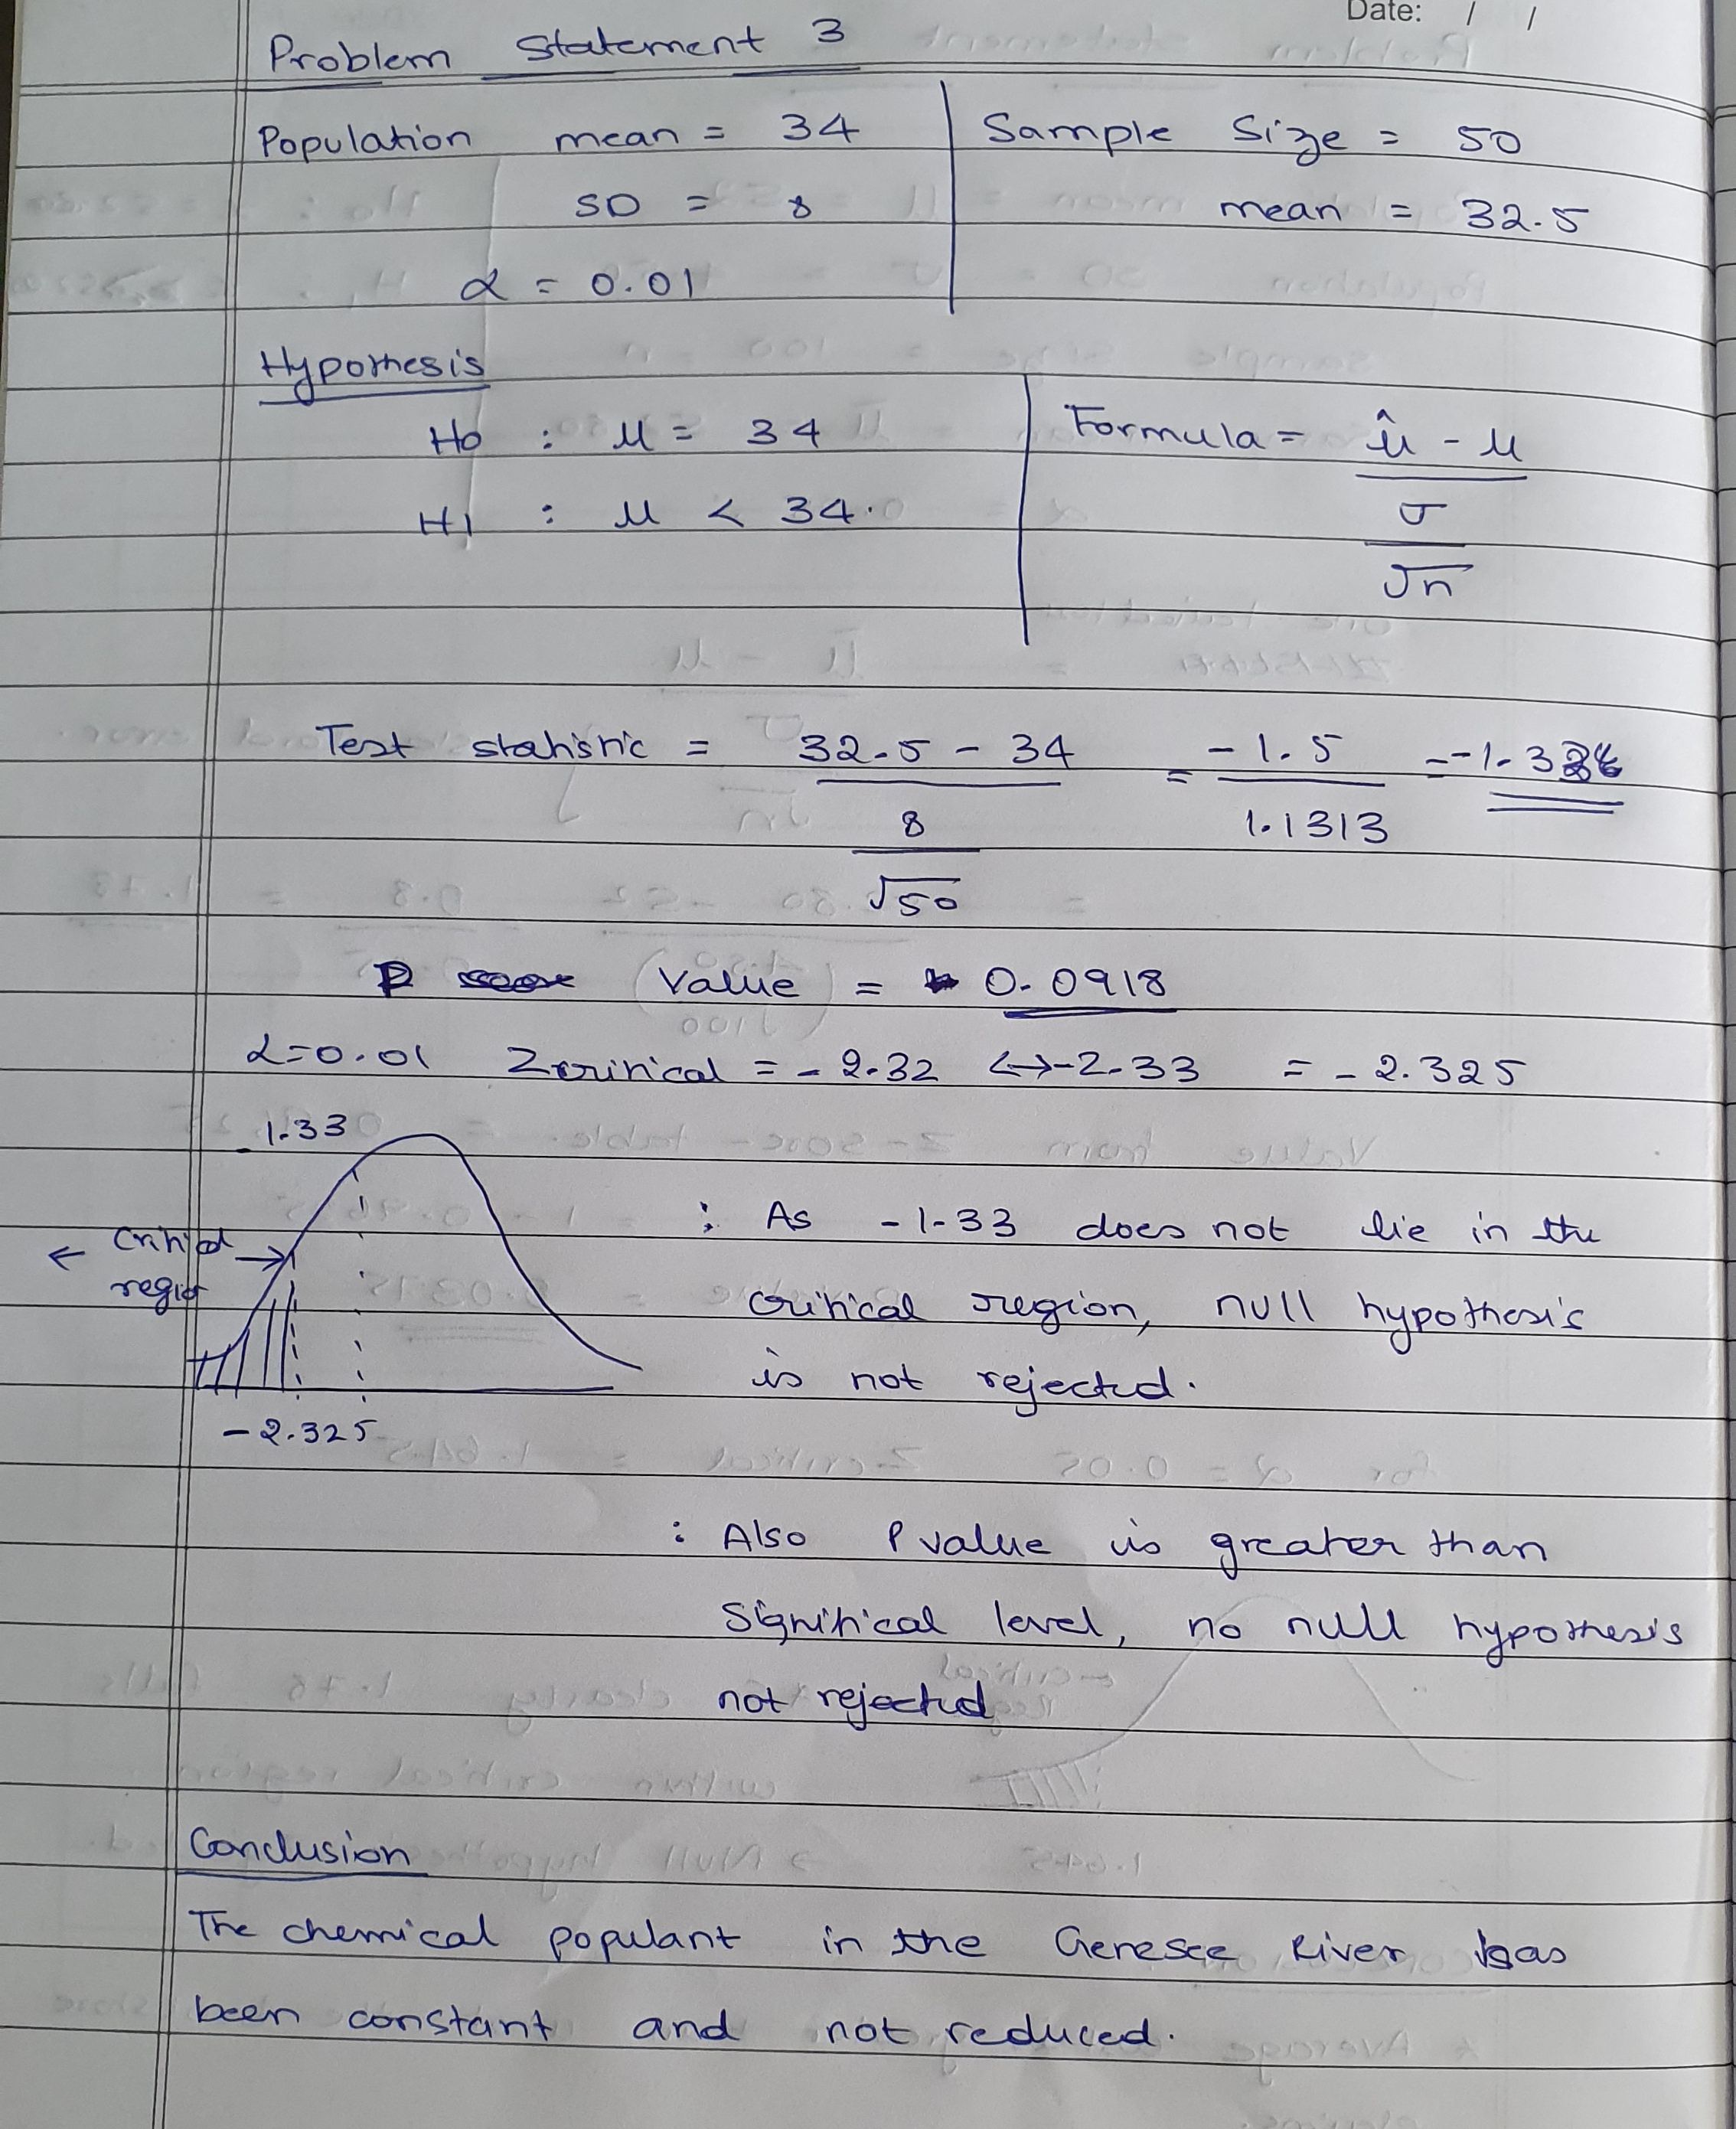 Date: / /
Problem Statement 3
Population mean = 34
SD = 8
α = 0.01
Sample Size = 50
mean = 32.5
Hypothesis
Ho : μ = 34
H1 : μ < 34.
Formula = μ̂ - μ
σ
√n
Test statistic = 32.5 - 34 = -1.5 = -1.32
8 1.1313
√50
P Value = 0.0918
α=0.01 Zcritical = -2.32 ↔ -2.33 = -2.325
-1.33
← Critical →
region
-2.325
: As -1.33 does not lie in the
critical region, null hypothesis
is not rejected.
: Also P value is greater than
Significal level, no null hypothesis
not rejected
Conclusion
The chemical populant in the Genesee River has
been constant and not reduced.